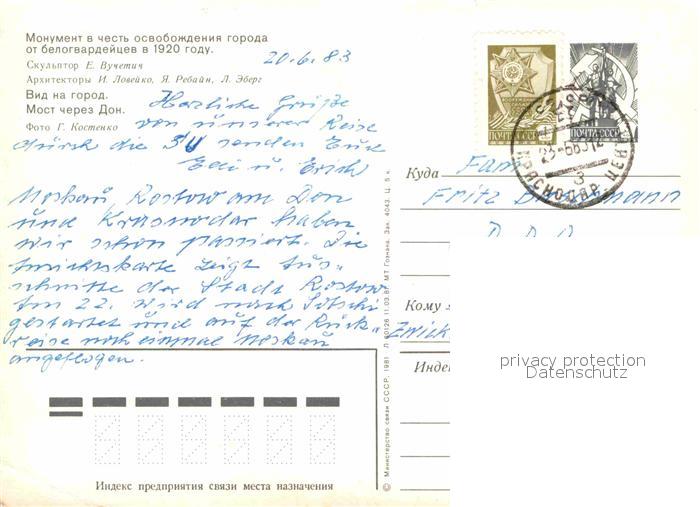 Монумент в честь освобождения города
от белогвардейцев в 1920 году.
Скульптор Е. Вучетич
Архитекторы И. Ловейко, Я. Ребайн, Л. Эберг
Вид на город.
Мост через Дон.
Фото Г. Костенко
20.6.83
Herzliche Grüße
von unserer Reise
durch die SU senden Euch
Edi u. Erich
Moskau, Rostow am Don
und Krasnodar haben
wir schon passiert. Die
Ansichtskarte zeigt Aus-
schnitte der Stadt Rostow
Am 22. wird nach Sotschi
gestartet und auf der Rück-
reise noch einmal Moskau
angeflogen.
Индекс предприятия связи места назначения
© Министерство связи СССР. 1981
МТ Гознака. Зак. 4043. Ц. 5 к.
ПОЧТА СССР
ПОЧТА СССР
КРАСНОДАР
Куда Fam
Fritz
DDR
Кому
Zwick
Инде
privacy protection
Datenschutz